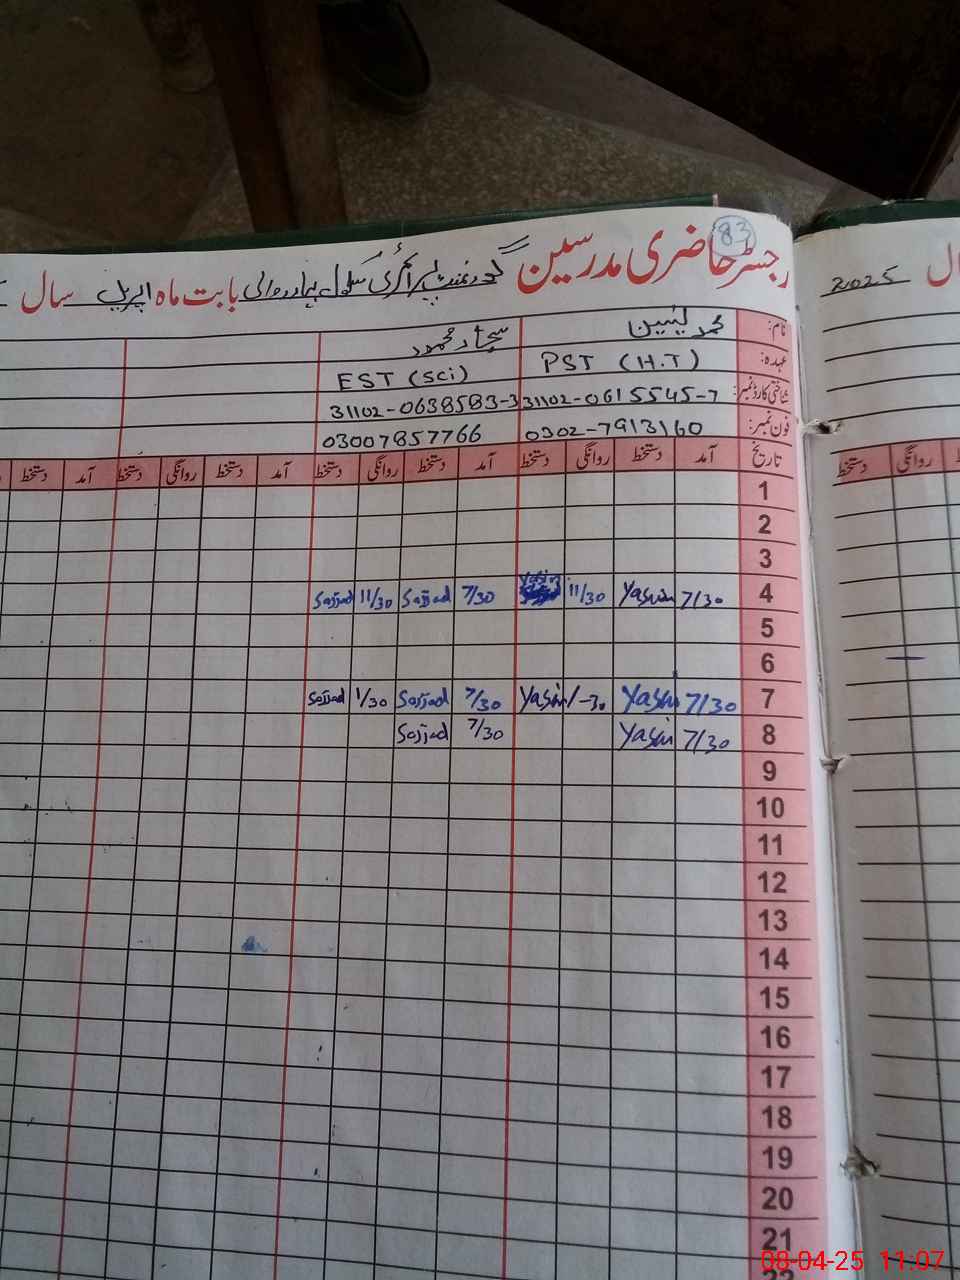 83
رجسٹر حاضری مدرسین گورنمنٹ پرائمری سکول بہادر والی بابت ماہ اپریل سال
2025
نام: محمد یٰسین سجاد محمود
عہدہ: PST (H.T) EST (Sci)
شناختی کارڈ نمبر: 31102-0615545-7 31102-0638583-3
فون نمبر: 0302-7913160 03007857766
تاریخ آمد دستخط روانگی دستخط آمد دستخط روانگی دستخط آمد دستخط روانگی دستخط آمد دستخط
دستخط روانگی
1
2
3
4 7/30 Yasin 11/30 Yasin 7/30 Sajjad 11/30 Sajjad
5
6
7 7/30 Yasin 1-30 Yasin 7/30 Sajjad 1/30 Sajjad
8 7/30 Yasin 7/30 Sajjad
9
10
11
12
13
14
15
16
17
18
19
20
21
08-04-25 11:07